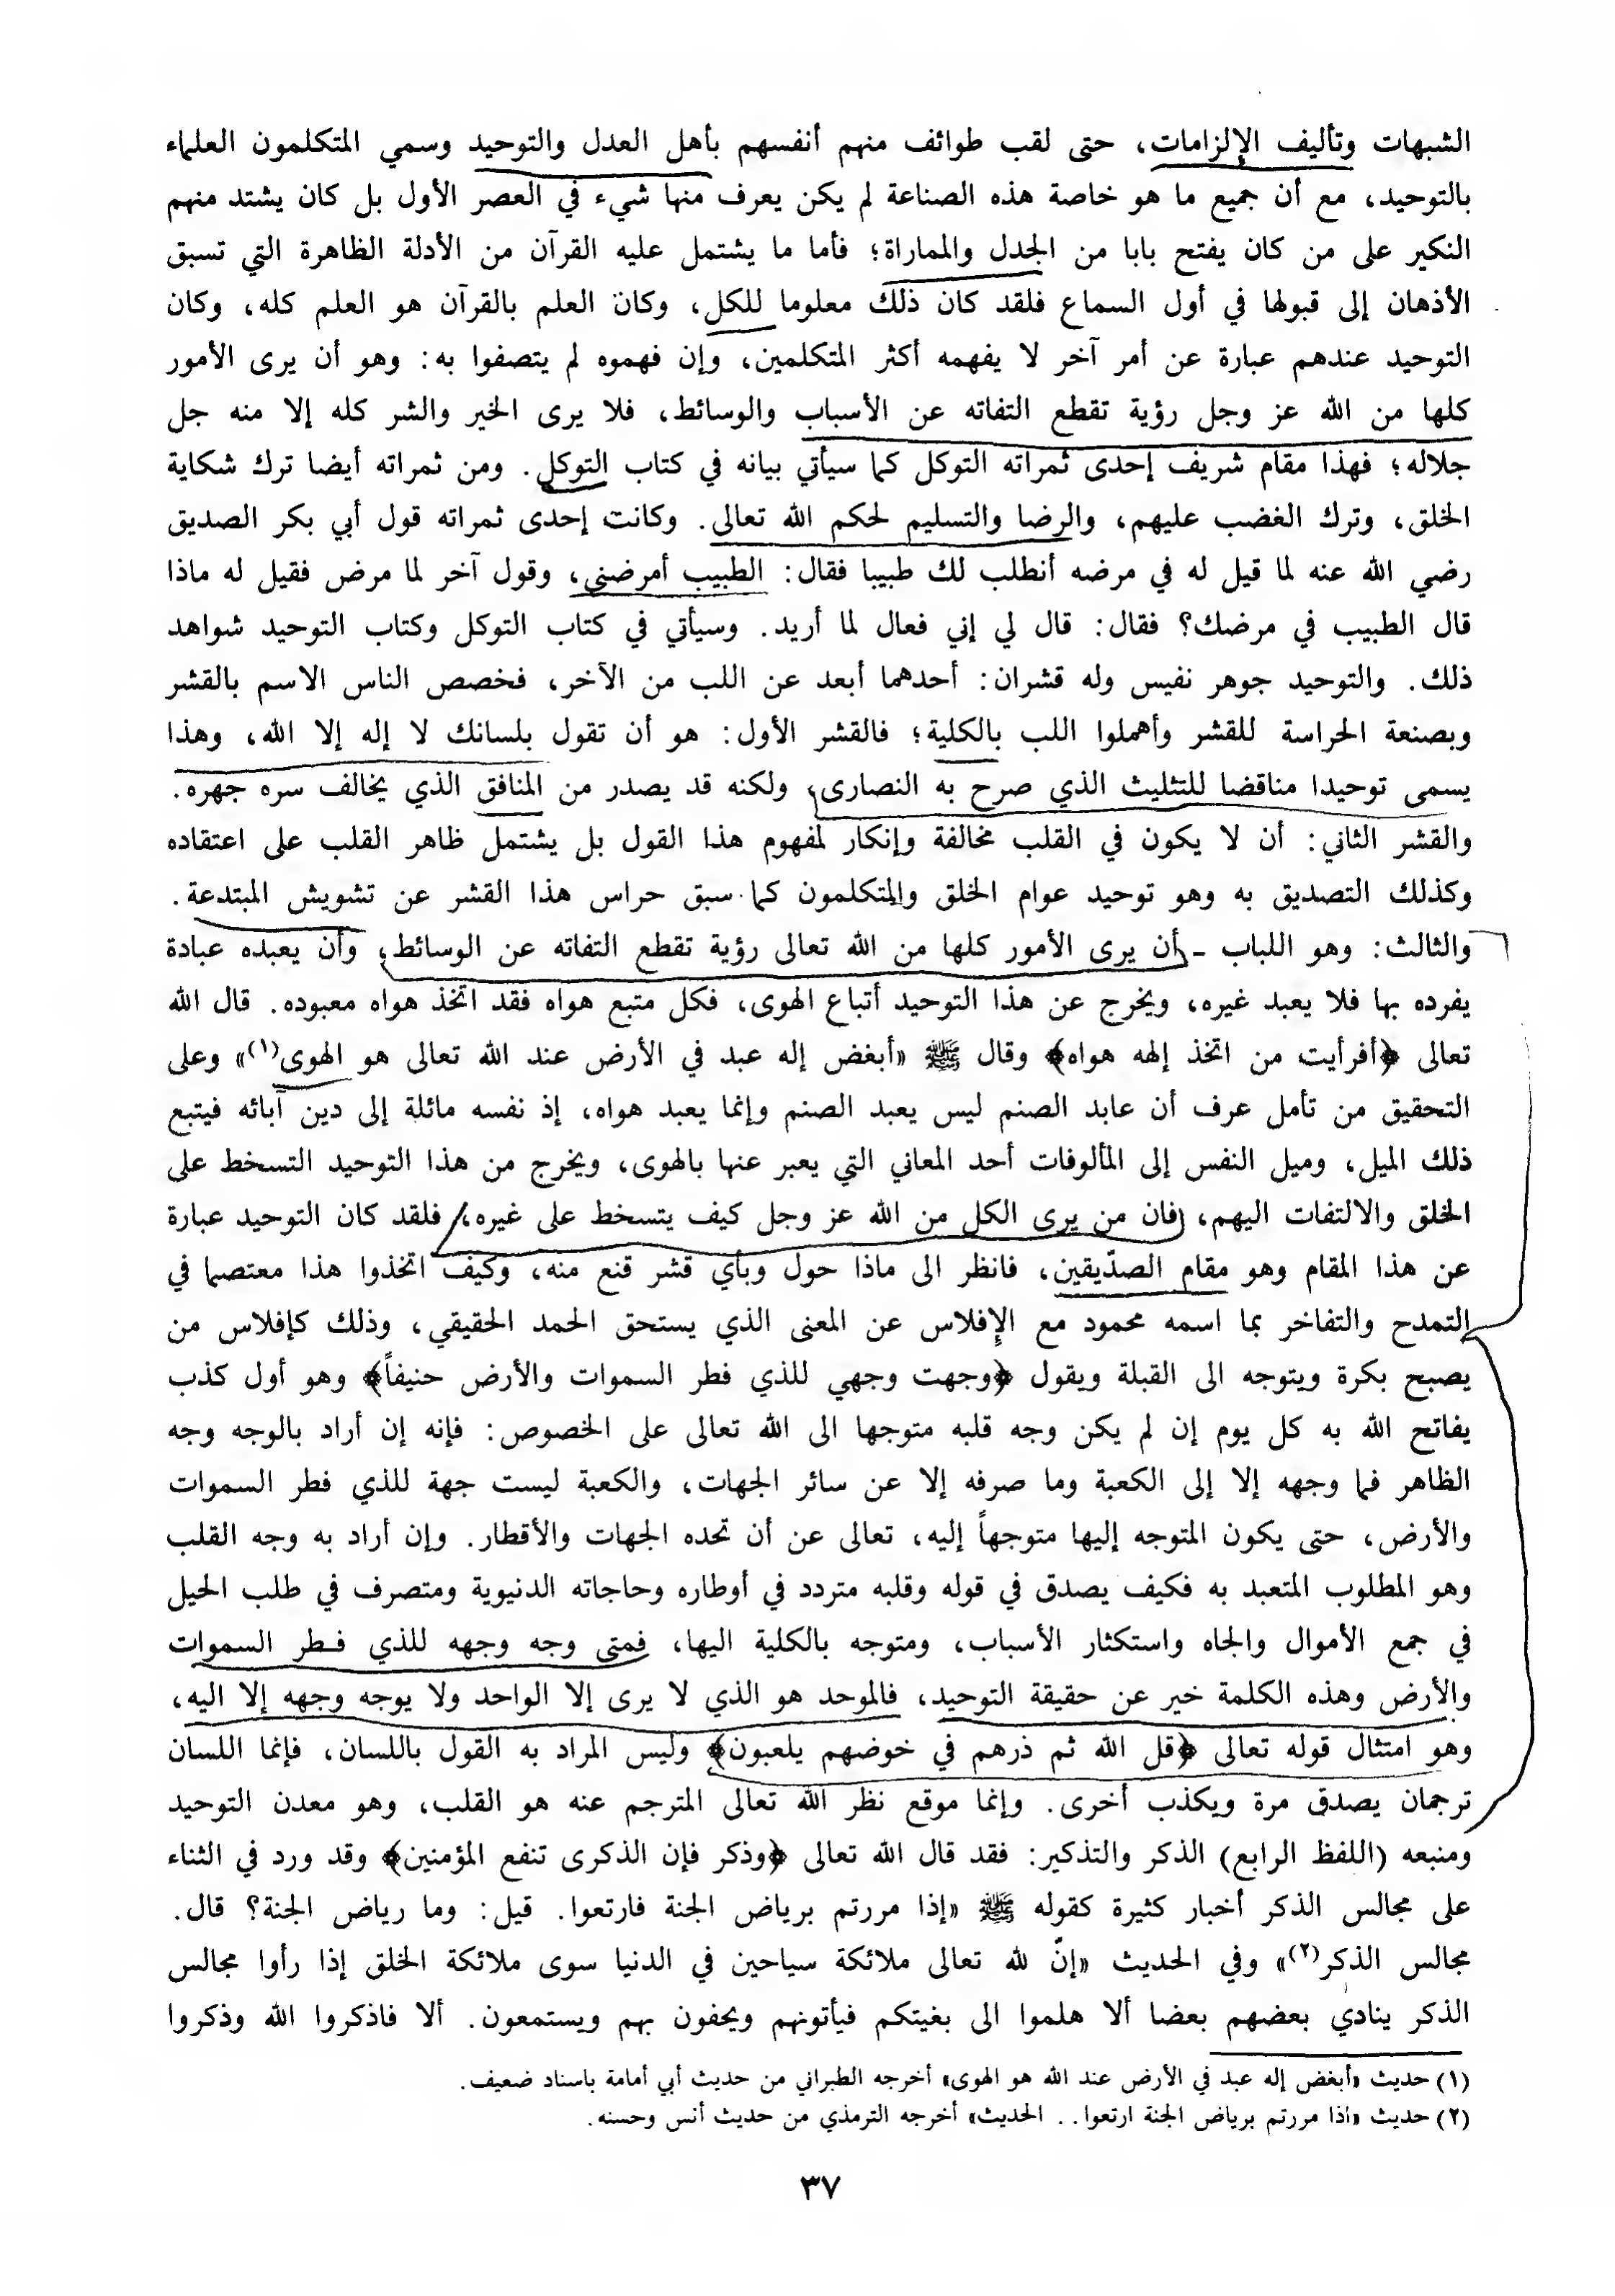 الشبهات وتأليف الإلزامات، حتى لقب طوائف منهم أنفسهم بأهل العدل والتوحيد وسمي المتكلمون العلماء
بالتوحيد، مع أن جميع ما هو خاصة هذه الصناعة لم يكن يعرف منها شيء في العصر الأول بل كان يشتد منهم
النكير على من كان يفتح بابا من الجدل والمماراة؛ فأما ما يشتمل عليه القرآن من الأدلة الظاهرة التي تسبق
الأذهان إلى قبولها في أول السماع فلقد كان ذلك معلوما للكل، وكان العلم بالقرآن هو العلم كله، وكان
التوحيد عندهم عبارة عن أمر آخر لا يفهمه أكثر المتكلمين، وإن فهموه لم يتصفوا به: وهو أن يرى الأمور
كلها من الله عز وجل رؤية تقطع التفاته عن الأسباب والوسائط، فلا يرى الخير والشر كله إلا منه جل
جلاله؛ فهذا مقام شريف إحدى ثمراته التوكل كما سيأتي بيانه في كتاب التوكل. ومن ثمراته أيضا ترك شكاية
الخلق، وترك الغضب عليهم، والرضا والتسليم لحكم الله تعالى. وكانت إحدى ثمراته قول أبي بكر الصديق
رضي الله عنه لما قيل له في مرضه أنطلب لك طبيبا فقال: الطبيب أمرضني، وقول آخر لما مرض فقيل له ماذا
قال الطبيب في مرضك؟ فقال: قال لي إني فعال لما أريد. وسيأتي في كتاب التوكل وكتاب التوحيد شواهد
ذلك. والتوحيد جوهر نفيس وله قشران: أحدهما أبعد عن اللب من الآخر، فخصص الناس الاسم بالقشر
وبصنعة الحراسة للقشر وأهملوا اللب بالكلية؛ فالقشر الأول: هو أن تقول بلسانك لا إله إلا الله، وهذا
يسمى توحيدا مناقضا للتثليث الذي صرح به النصارى، ولكنه قد يصدر من المنافق الذي يخالف سره جهره.
والقشر الثاني: أن لا يكون في القلب مخالفة وإنكار لمفهوم هذا القول بل يشتمل ظاهر القلب على اعتقاده
وكذلك التصديق به وهو توحيد عوام الخلق والمتكلمون كما سبق حراس هذا القشر عن تشويش المبتدعة.
والثالث: وهو اللباب - أن يرى الأمور كلها من الله تعالى رؤية تقطع التفاته عن الوسائط، وأن يعبده عبادة
يفرده بها فلا يعبد غيره، ويخرج عن هذا التوحيد أتباع الهوى، فكل متبع هواه فقد اتخذ هواه معبوده. قال الله
تعالى ﴿أفرأيت من اتخذ إلهه هواه﴾ وقال ﷺ «أبغض إله عبد في الأرض عند الله تعالى هو الهوى(١)» وعلى
التحقيق من تأمل عرف أن عابد الصنم ليس يعبد الصنم وإنما يعبد هواه، إذ نفسه مائلة إلى دين آبائه فيتبع
ذلك الميل، وميل النفس إلى المألوفات أحد المعاني التي يعبر عنها بالهوى، ويخرج من هذا التوحيد التسخط على
الخلق والالتفات اليهم، فان من يرى الكل من الله عز وجل كيف يتسخط على غيره، فلقد كان التوحيد عبارة
عن هذا المقام وهو مقام الصدّيقين، فانظر الى ماذا حول وبأي قشر قنع منه، وكيف اتخذوا هذا معتصما في
التمدح والتفاخر بما اسمه محمود مع الإفلاس عن المعنى الذي يستحق الحمد الحقيقي، وذلك كإفلاس من
يصبح بكرة ويتوجه الى القبلة ويقول ﴿وجهت وجهي للذي فطر السموات والأرض حنيفاً﴾ وهو أول كذب
يفاتح الله به كل يوم إن لم يكن وجه قلبه متوجها الى الله تعالى على الخصوص: فإنه إن أراد بالوجه وجه
الظاهر فما وجهه إلا إلى الكعبة وما صرفه إلا عن سائر الجهات، والكعبة ليست جهة للذي فطر السموات
والأرض، حتى يكون المتوجه إليها متوجهاً إليه، تعالى عن أن تحده الجهات والأقطار. وإن أراد به وجه القلب
وهو المطلوب المتعبد به فكيف يصدق في قوله وقلبه متردد في أوطاره وحاجاته الدنيوية ومتصرف في طلب الحيل
في جمع الأموال والجاه واستكثار الأسباب، ومتوجه بالكلية اليها، فمتى وجه وجهه للذي فطر السموات
والأرض وهذه الكلمة خبر عن حقيقة التوحيد، فالموحد هو الذي لا يرى إلا الواحد ولا يوجه وجهه إلا اليه،
وهو امتثال قوله تعالى ﴿قل الله ثم ذرهم في خوضهم يلعبون﴾ وليس المراد به القول باللسان، فإنما اللسان
ترجمان يصدق مرة ويكذب أخرى. وإنما موقع نظر الله تعالى المترجم عنه هو القلب، وهو معدن التوحيد
ومنبعه (اللفظ الرابع) الذكر والتذكير: فقد قال الله تعالى ﴿وذكر فإن الذكرى تنفع المؤمنين﴾ وقد ورد في الثناء
على مجالس الذكر أخبار كثيرة كقوله ﷺ «إذا مررتم برياض الجنة فارتعوا. قيل: وما رياض الجنة؟ قال.
مجالس الذكر(٢)» وفي الحديث «إنّ لله تعالى ملائكة سياحين في الدنيا سوى ملائكة الخلق إذا رأوا مجالس
الذكر ينادي بعضهم بعضا ألا هلموا الى بغيتكم فيأتونهم ويحفون بهم ويستمعون. ألا فاذكروا الله وذكروا
(١) حديث «أبغض إله عبد في الأرض عند الله هو الهوى» أخرجه الطبراني من حديث أبي أمامة باسناد ضعيف.
(٢) حديث «اذا مررتم برياض الجنة ارتعوا.. الحديث» أخرجه الترمذي من حديث أنس وحسنه.
٣٧